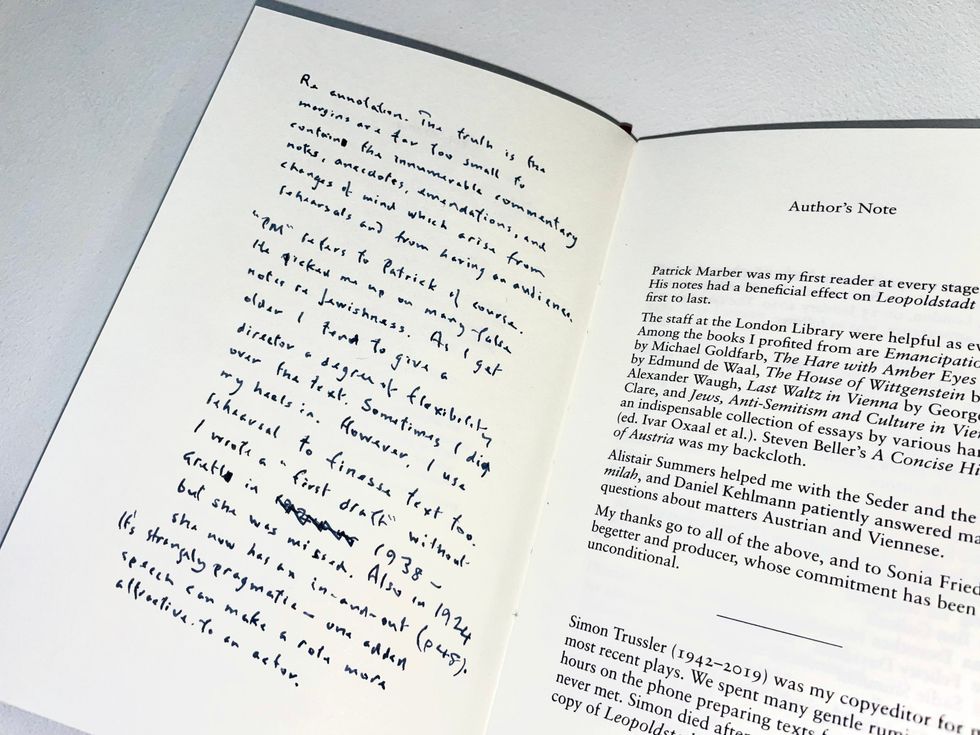 Re annotation. The truth is the
margins are far too small to
contain the innumerable commentary
notes, anecdotes, emendations, and
changes of mind which arise from
rehearsals and from having an audience.
"PM" refers to Patrick of course.
He picked me up on many false
notes re Jewishness. As I get
older I tend to give a
director a degree of flexibility
over the text. Sometimes I dig
my heels in. However, I use
rehearsal to finesse text too.
I wrote a "first draft" without
Gretl in 1938 –
but she was missed. Also in 1924
she now has an in-and-out (p48).
It's strangely pragmatic – one added
speech can make a role more
attractive to an actor.
Author's Note
Patrick Marber was my first reader at every stage
His notes had a beneficial effect on Leopoldstadt
first to last.
The staff at the London Library were helpful as ev
Among the books I profited from are Emancipatio
by Michael Goldfarb, The Hare with Amber Eyes
by Edmund de Waal, The House of Wittgenstein b
Alexander Waugh, Last Waltz in Vienna by George
Clare, and Jews, Anti-Semitism and Culture in Vien
an indispensable collection of essays by various han
(ed. Ivar Oxaal et al.). Steven Beller's A Concise Hi
of Austria was my backcloth.
Alistair Summers helped me with the Seder and the
milah, and Daniel Kehlmann patiently answered ma
questions about matters Austrian and Viennese.
My thanks go to all of the above, and to Sonia Fried
begetter and producer, whose commitment has been
unconditional.
Simon Trussler (1942–2019) was my copyeditor for
most recent plays. We spent many gentle rumi
hours on the phone preparing texts f
never met. Simon died after
copy of Leopoldst